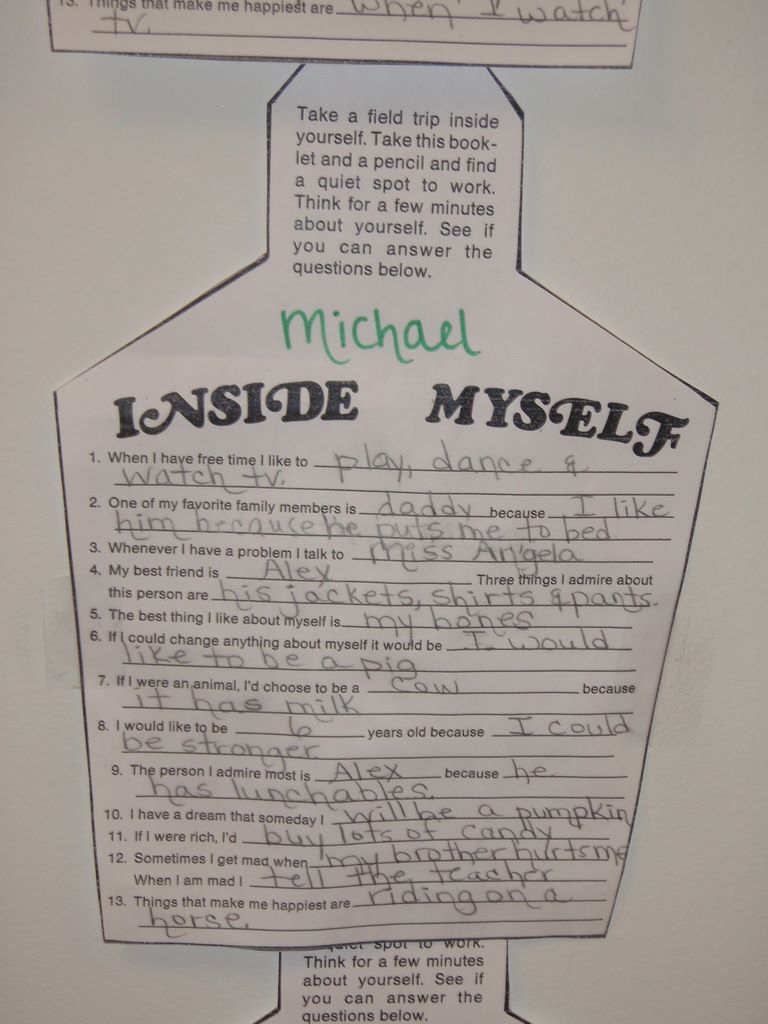 13. Things that make me happiest are when I watch
tv.
Take a field trip inside
yourself. Take this book-
let and a pencil and find
a quiet spot to work.
Think for a few minutes
about yourself. See if
you can answer the
questions below.
Michael
INSIDE MYSELF
1. When I have free time I like to play, dance &
watch tv.
2. One of my favorite family members is daddy because I like
him because he puts me to bed
3. Whenever I have a problem I talk to Miss Angela
4. My best friend is Alex Three things I admire about
this person are his jackets, shirts & pants.
5. The best thing I like about myself is my bones
6. If I could change anything about myself it would be I would
like to be a pig
7. If I were an animal, I'd choose to be a cow because
it has milk
8. I would like to be 6 years old because I could
be stronger.
9. The person I admire most is Alex because he
has lunchables.
10. I have a dream that someday I will be a pumpkin
11. If I were rich, I'd buy lots of candy
12. Sometimes I get mad when my brother hurts me
When I am mad I tell the teacher
13. Things that make me happiest are riding on a
horse.
quiet spot to work.
Think for a few minutes
about yourself. See if
you can answer the
questions below.